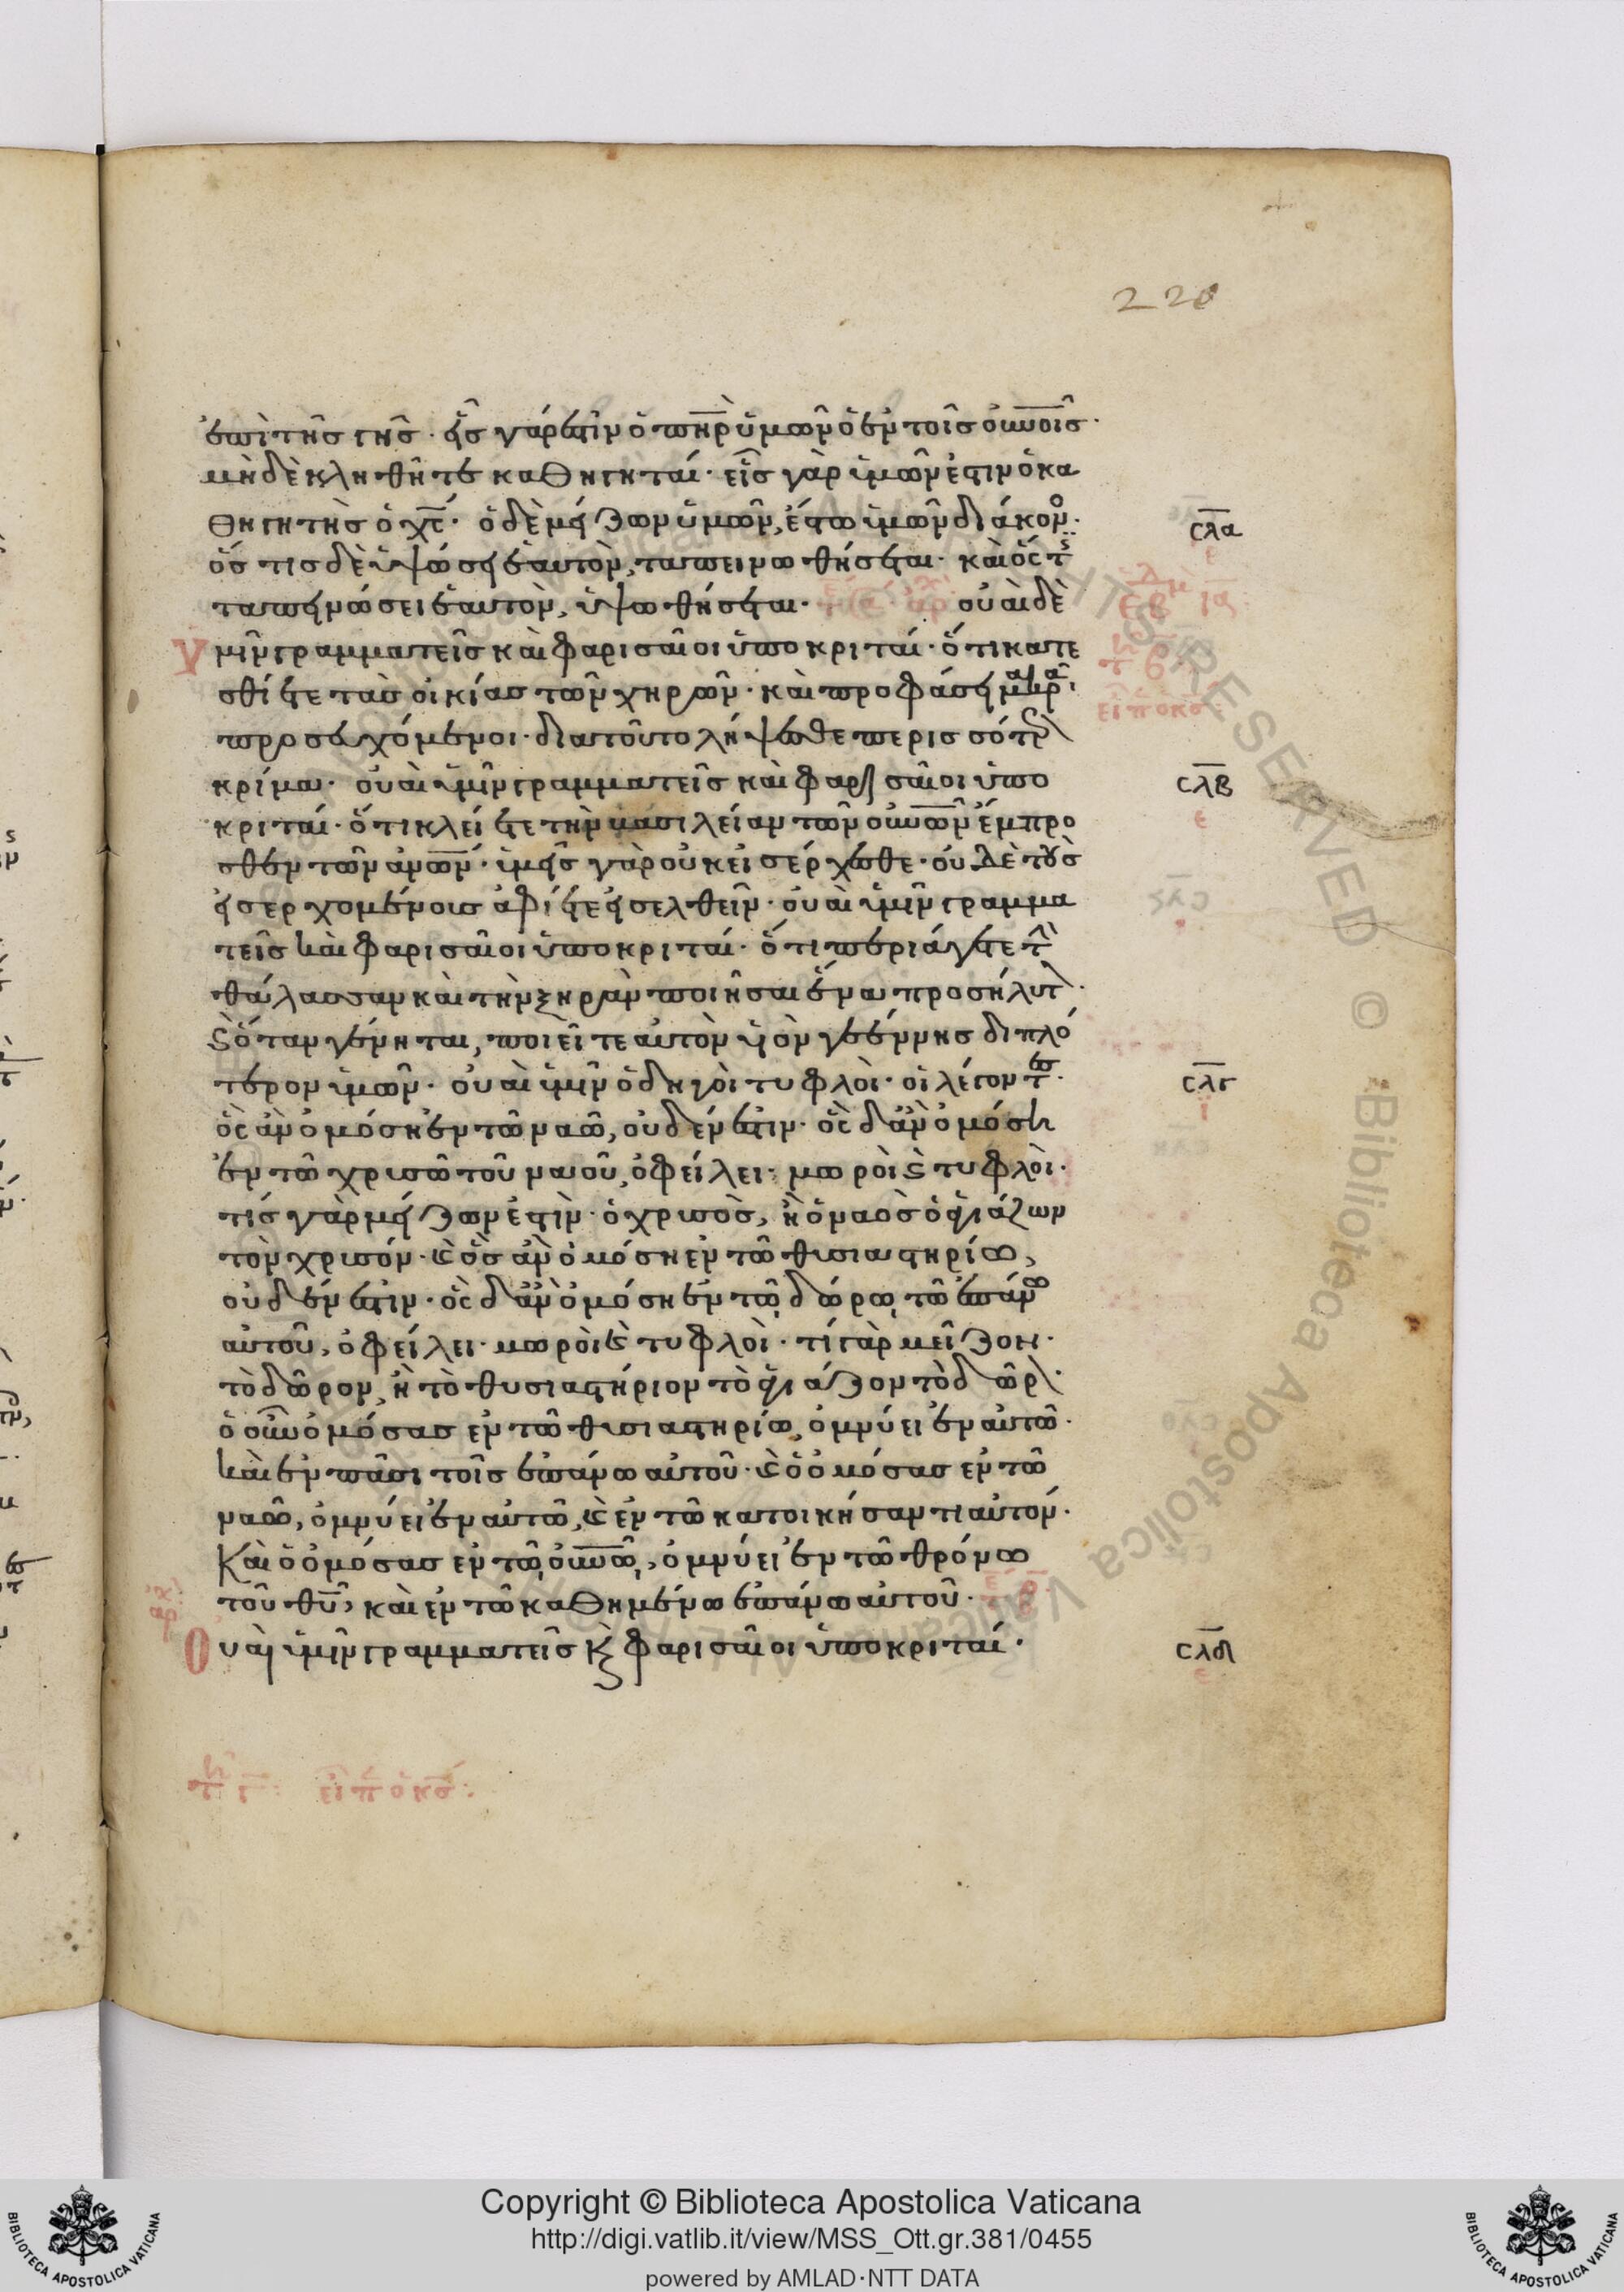 220
ἐπὶ τῆς γῆς· εἷς γάρ ἐστιν ὁ πη̅ρ ὑμῶν ὁ ἐν τοῖς οὐν̅οῖς·
μὴ δὲ κληθῆτε καθηγηταί· εἷς γὰρ ὑμῶν ἐστιν ὁ κα
θηγητὴς ὁ χς̅· ὁ δὲ μείζων ὑμῶν, ἔστω ὑμῶν διάκον·
σλα
ὅστις δὲ ὑψώσει ἑαυτὸν, ταπεινωθήσεται· καὶ ὅστ
ταπεινώσει ἑαυτὸν, ὑψωθήσεται· οὐαὶ δὲ
ὑμῖν γραμματεῖς καὶ φαρισαῖοι ὑποκριταί· ὅτι κατε
σθίετε τὰς οἰκίας τῶν χηρῶν· καὶ προφάσει μακρᾶ
προσευχόμενοι· διατοῦτο λήψεσθε περισσότερον
κρίμα· οὐαὶ ὑμῖν γραμματεῖς καὶ φαρισαῖοι ὑπο
σλβ
ε
κριταί· ὅτι κλείετε τὴν βασιλείαν τῶν οὐν̅ῶν ἔμπρο
σθεν τῶν αν̅ων· ὑμεῖς γὰρ οὐκ εἰσέρχεσθε· οὐδὲ τοὺς
εἰσερχομένους ἀφίετε εἰσελθεῖν· οὐαὶ ὑμῖν γραμμα
τεῖς καὶ φαρισαῖοι ὑποκριταί· ὅτι περιάγετε τὴν
θάλασσαν καὶ τὴν ξηρὰν ποιῆσαι ἕνα προσήλυτον·
καὶ ὅταν γένηται, ποιεῖτε αὐτὸν υἱὸν γεέννης διπλό
τερον ὑμῶν· οὐαὶ ὑμῖν ὁδηγοὶ τυφλοὶ· οἱ λέγοντες·
σλγ
ὃς ἂν ὀμόση ἐν τῶ ναῶ, οὐδέν ἐστιν· ὃς δ' ἂν ὀμόση
ἐν τῶ χρυσῶ τοῦ ναοῦ, ὀφείλει· μωροὶ καὶ τυφλοὶ·
τίς γὰρ μείζων ἐστὶν· ὁ χρυσὸς, ἢ ὁ ναὸς ὁ ἁγιάζων
τὸν χρυσόν· καὶ ὃς ἂν ὀμόση ἐν τῶ θυσιαστηρίω,
οὐδέν ἐστιν· ὃς δ' ἂν ὀμόση ἐν τῶ δώρω τῶ ἐπάνω
αὐτοῦ, ὀφείλει· μωροὶ καὶ τυφλοὶ· τί γὰρ μεῖζον·
τὸ δῶρον, ἢ τὸ θυσιαστήριον τὸ ἁγιάζον τὸ δῶρον·
ὁ οὖν ὀμόσας ἐν τῶ θυσιαστηρίω, ὀμνύει ἐν αὐτῶ·
καὶ ἐν πᾶσι τοῖς ἐπάνω αὐτοῦ· καὶ ὁ ὀμόσας ἐν τῶ
ναῶ, ὀμνύει ἐν αὐτῶ, καὶ ἐν τῶ κατοικήσαντι αὐτόν·
Καὶ ὁ ὀμόσας ἐν τῶ οὐν̅ῶ, ὀμνύει ἐν τῶ θρόνω
τοῦ θυ̅, καὶ ἐν τῶ καθημένω ἐπάνω αὐτοῦ·
Οὐαὶ ὑμῖν γραμματεῖς καὶ φαρισαῖοι ὑποκριταί·
σλδ
Copyright © Biblioteca Apostolica Vaticana
http://digi.vatlib.it/view/MSS_Ott.gr.381/0455
powered by AMLAD·NTT DATA
BIBLIOTECA APOSTOLICA VATICANA
BIBLIOTECA APOSTOLICA VATICANA